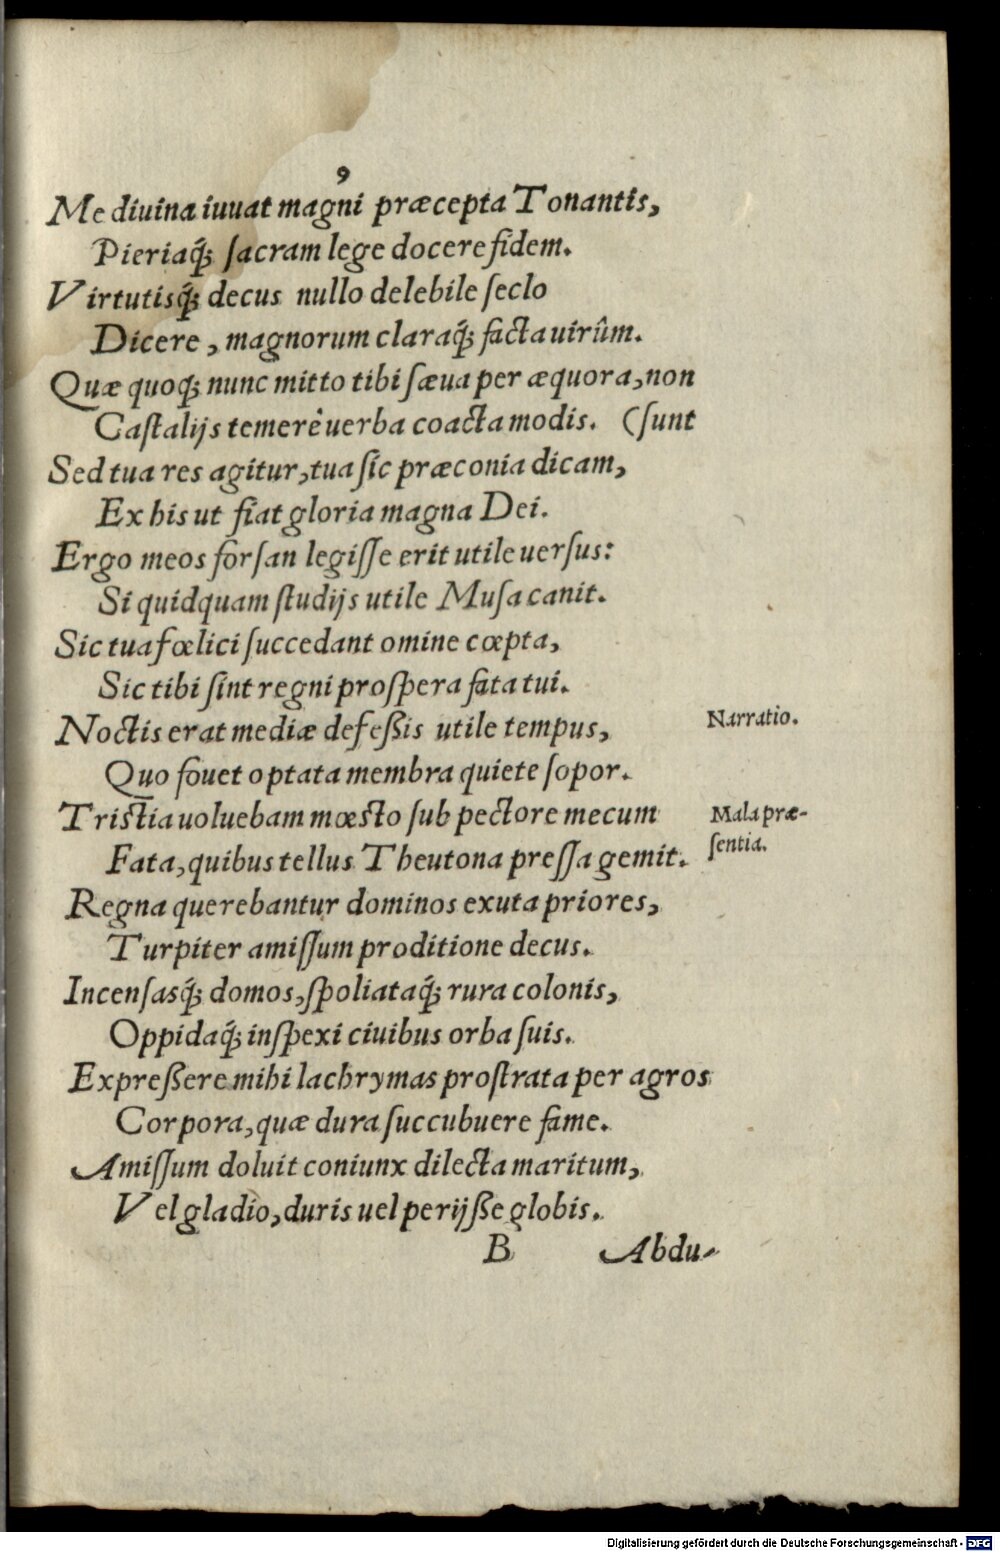 9
Me diuina iuuat magni præcepta Tonantis,
Pieriaq́; sacram lege docere fidem.
Virtutisq́; decus nullo delebile seclo
Dicere, magnorum claraq́; facta uirûm.
Quæ quoq; nunc mitto tibi sæua per æquora, non
Castalijs temerè uerba coacta modis. (sunt
Sed tua res agitur, tua sic præconia dicam,
Ex his ut fiat gloria magna Dei.
Ergo meos forsan legisse erit utile uersus:
Si quidquam studijs utile Musa canit.
Sic tua fœlici succedant omine cœpta,
Sic tibi sint regni prospera fata tui.
Noctis erat mediæ defeßis utile tempus,
Narratio.
Quo fouet optata membra quiete sopor.
Tristia uoluebam mœsto sub pectore mecum
Mala præ-
Fata, quibus tellus Theutona pressa gemit.
sentia.
Regna querebantur dominos exuta priores,
Turpiter amissum proditione decus.
Incensasq́; domos, spoliataq́; rura colonis,
Oppidaq́; inspexi ciuibus orba suis.
Expreßere mihi lachrymas prostrata per agros
Corpora, quæ dura succubuere fame.
Amissum doluit coniunx dilecta maritum,
Vel gladio, duris uel perijße globis.
B Abdu-
Digitalisierung gefördert durch die Deutsche Forschungsgemeinschaft - DFG